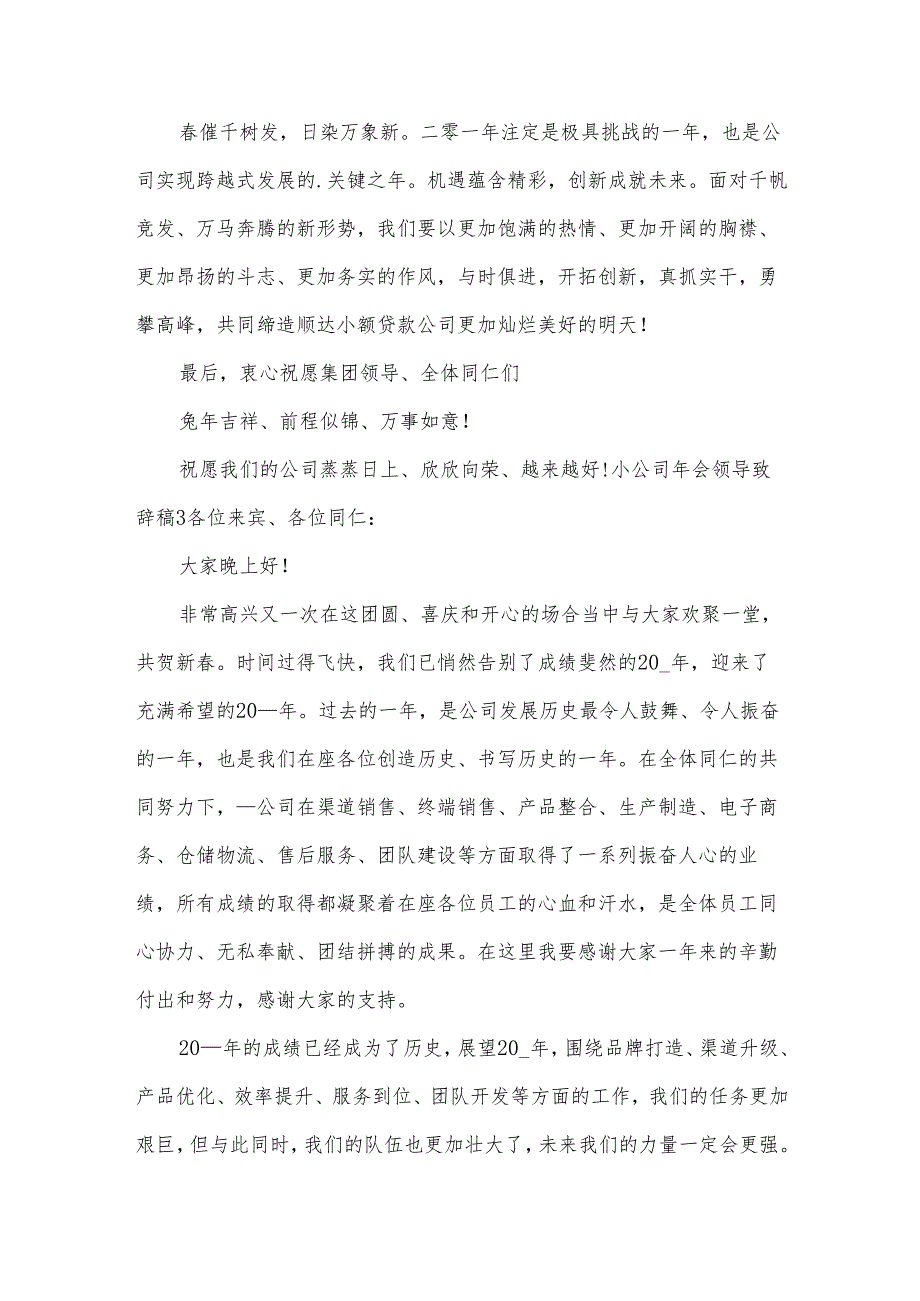 春催千树发，日染万象新。二零一年注定是极具挑战的一年，也是公
司实现跨越式发展的.关键之年。机遇蕴含精彩，创新成就未来。面对千帆
竞发、万马奔腾的新形势，我们要以更加饱满的热情、更加开阔的胸襟、
更加昂扬的斗志、更加务实的作风，与时俱进，开拓创新，真抓实干，勇
攀高峰，共同缔造顺达小额贷款公司更加灿烂美好的明天！
最后，衷心祝愿集团领导、全体同仁们
兔年吉祥、前程似锦、万事如意！
祝愿我们的公司蒸蒸日上、欣欣向荣、越来越好!小公司年会领导致
辞稿3各位来宾、各位同仁：
大家晚上好！
非常高兴又一次在这团圆、喜庆和开心的场合当中与大家欢聚一堂，
共贺新春。时间过得飞快，我们已悄然告别了成绩斐然的20_年，迎来了
充满希望的20—年。过去的一年，是公司发展历史最令人鼓舞、令人振奋
的一年，也是我们在座各位创造历史、书写历史的一年。在全体同仁的共
同努力下，—公司在渠道销售、终端销售、产品整合、生产制造、电子商
务、仓储物流、售后服务、团队建设等方面取得了一系列振奋人心的业
绩，所有成绩的取得都凝聚着在座各位员工的心血和汗水，是全体员工同
心协力、无私奉献、团结拼搏的成果。在这里我要感谢大家一年来的辛勤
付出和努力，感谢大家的支持。
20—年的成绩已经成为了历史，展望20_年，围绕品牌打造、渠道升级、
产品优化、效率提升、服务到位、团队开发等方面的工作，我们的任务更加
艰巨，但与此同时，我们的队伍也更加壮大了，未来我们的力量一定会更强。